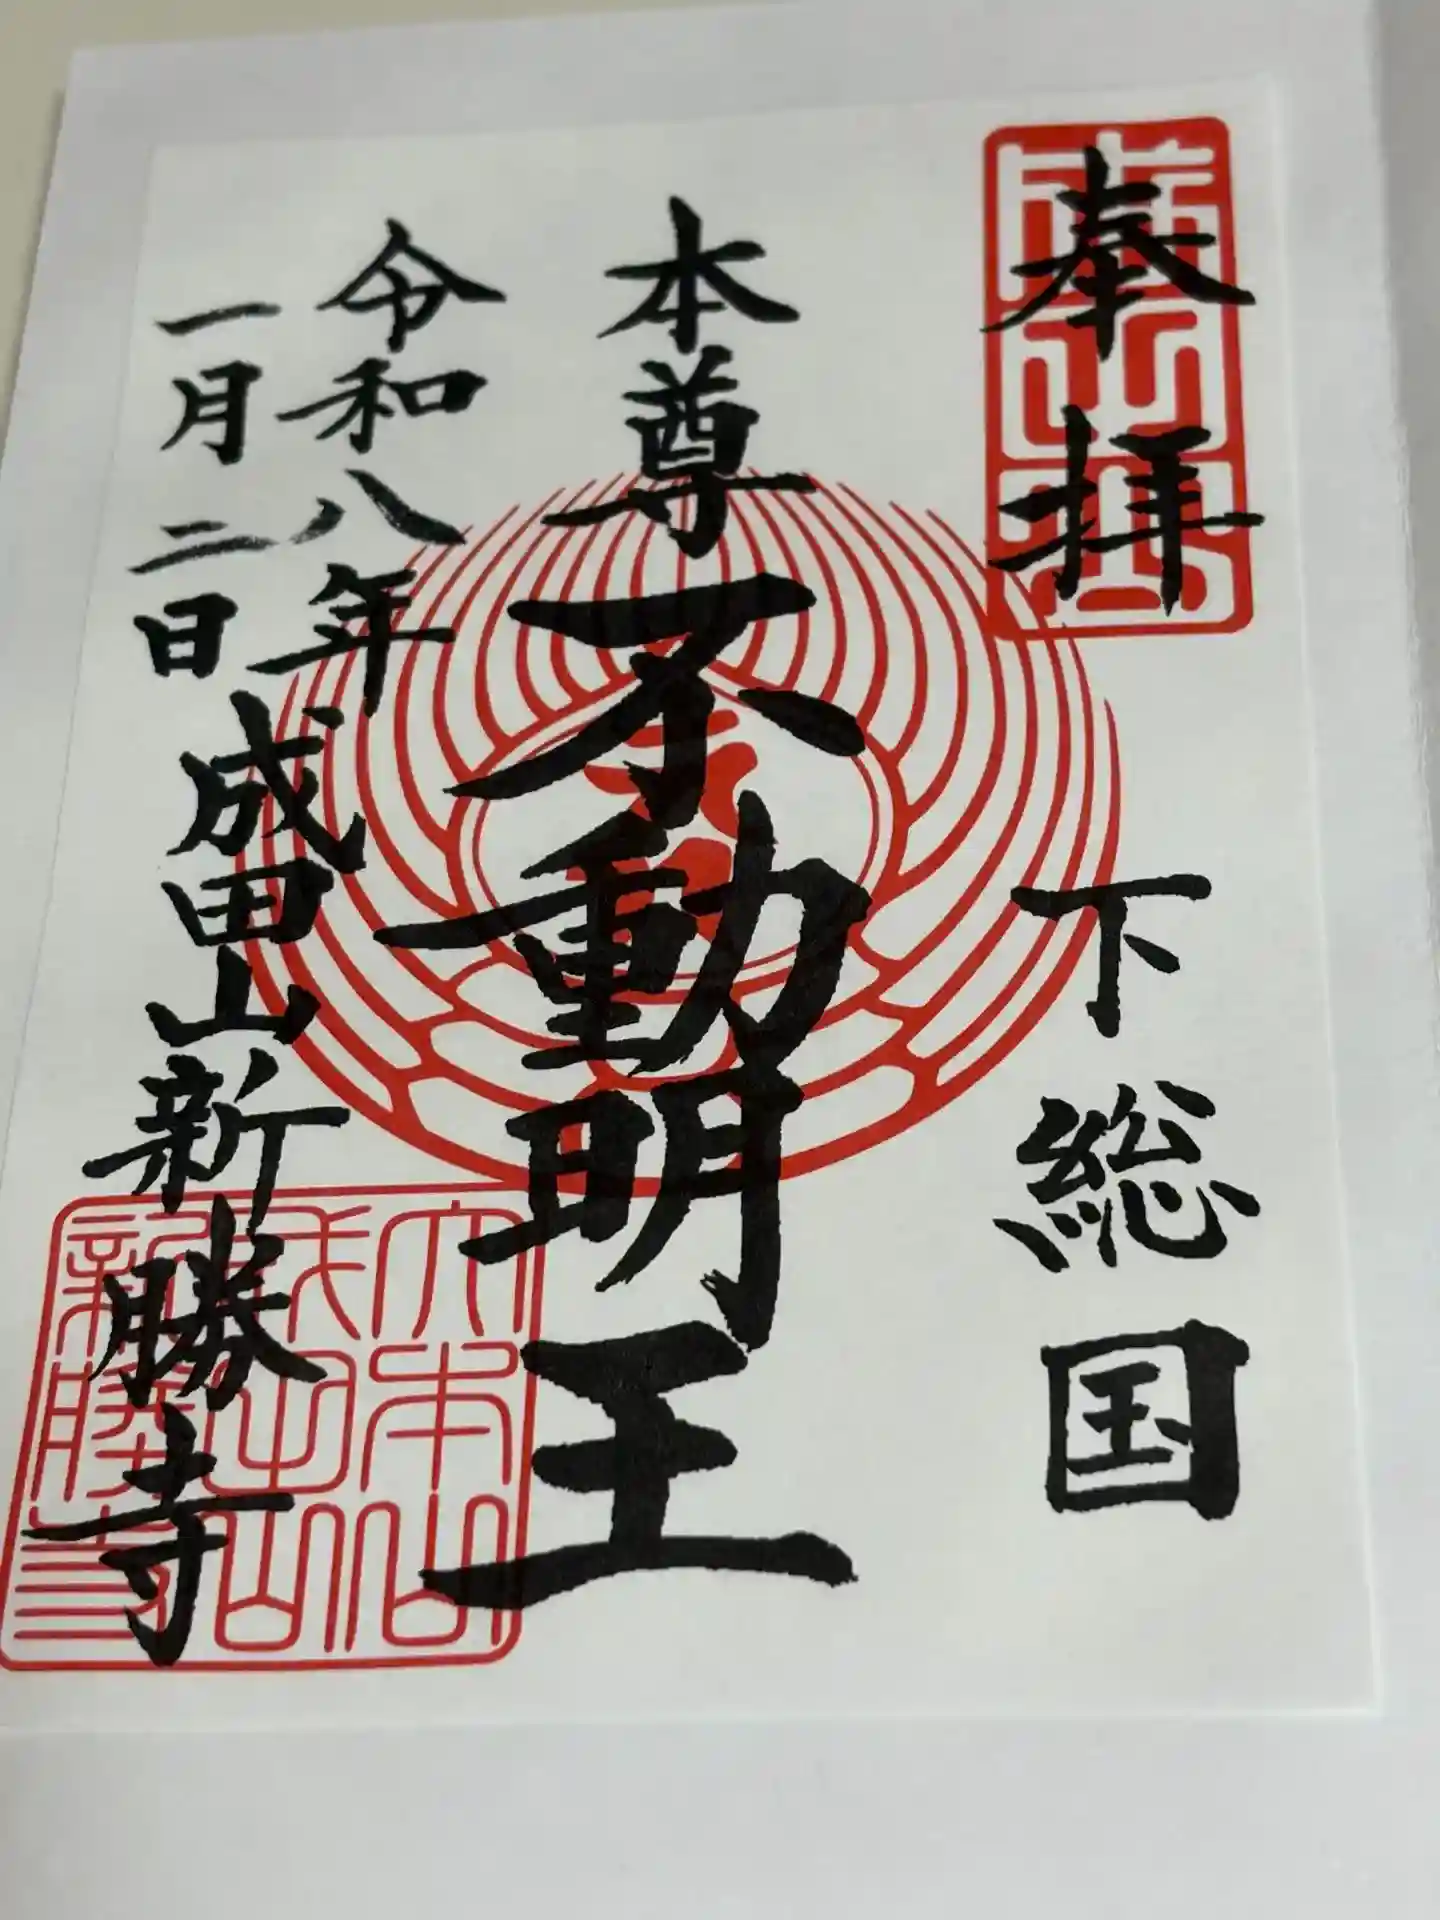 奉拝
下総国
本尊不動明王
令和八年
一月二日
成田山新勝寺
大本山
成田山
新勝寺